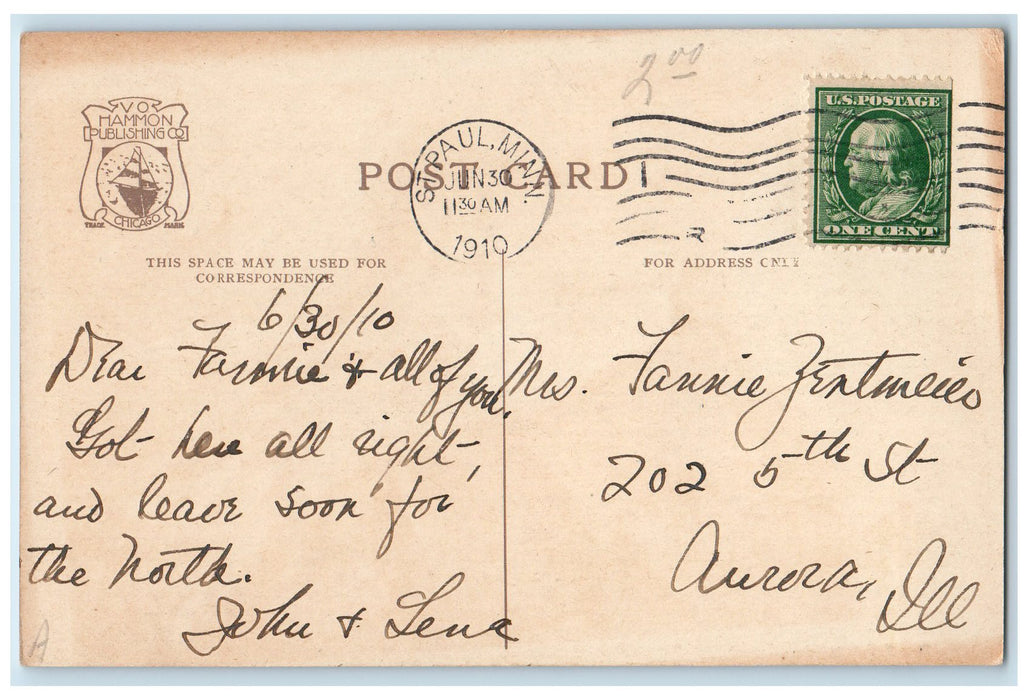 2 00
V O
HAMMON
PUBLISHING CO
CHICAGO
TRADE MARK
POST CARD
ST. PAUL, MINN.
JUN 30
11 30 AM
1910
U.S. POSTAGE
ONE CENT
R
THIS SPACE MAY BE USED FOR
CORRESPONDENCE
FOR ADDRESS ONLY
6/30/10
Dear Fannie & all of you.
Got here all right,
and leave soon for
the North.
John & Lena
Mrs. Fannie Zentmeier
202 5th St
Aurora, Ill
A